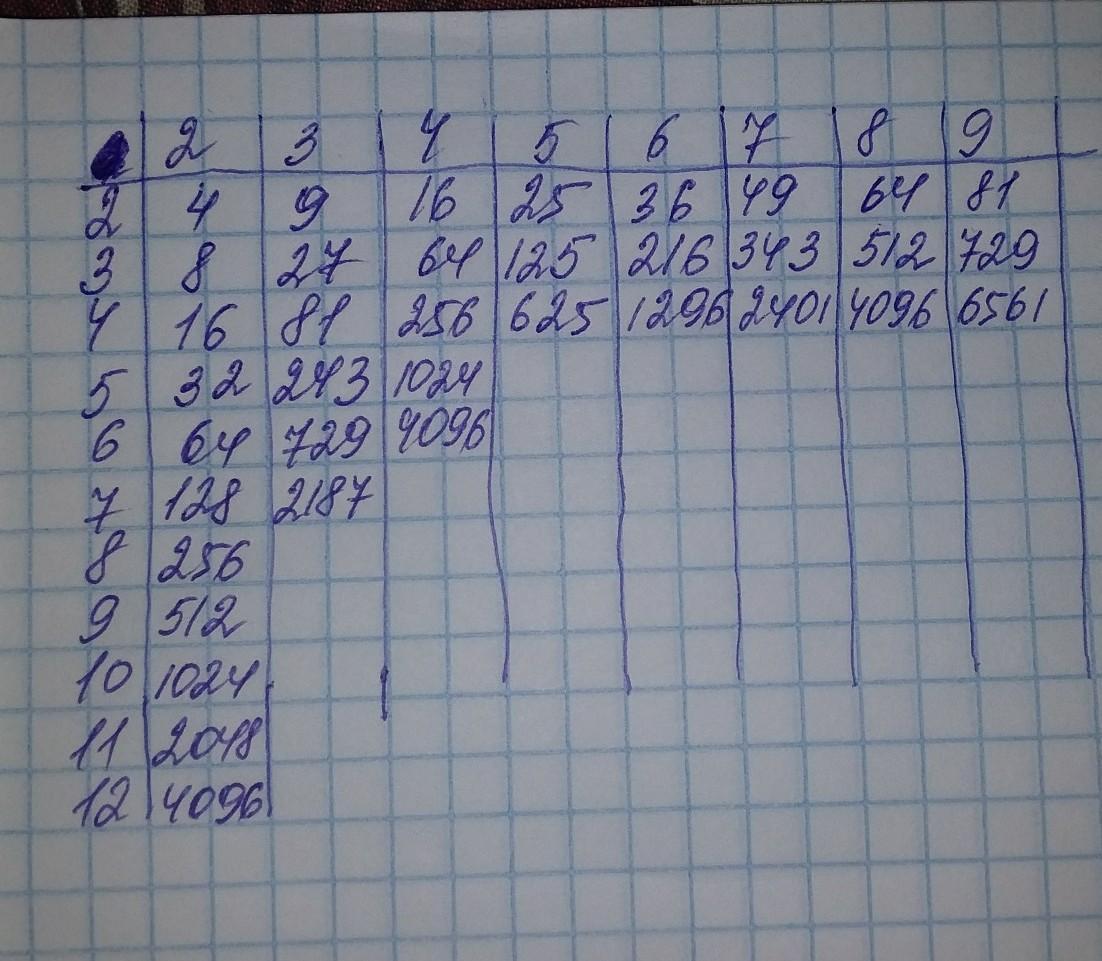 2 3 4 5 6 7 8 9
2 4 9 16 25 36 49 64 81
3 8 27 64 125 216 343 512 729
4 16 81 256 625 1296 2401 4096 6561
5 32 243 1024
6 64 729 4096
7 128 2187
8 256
9 512
10 1024
11 2048
12 4096